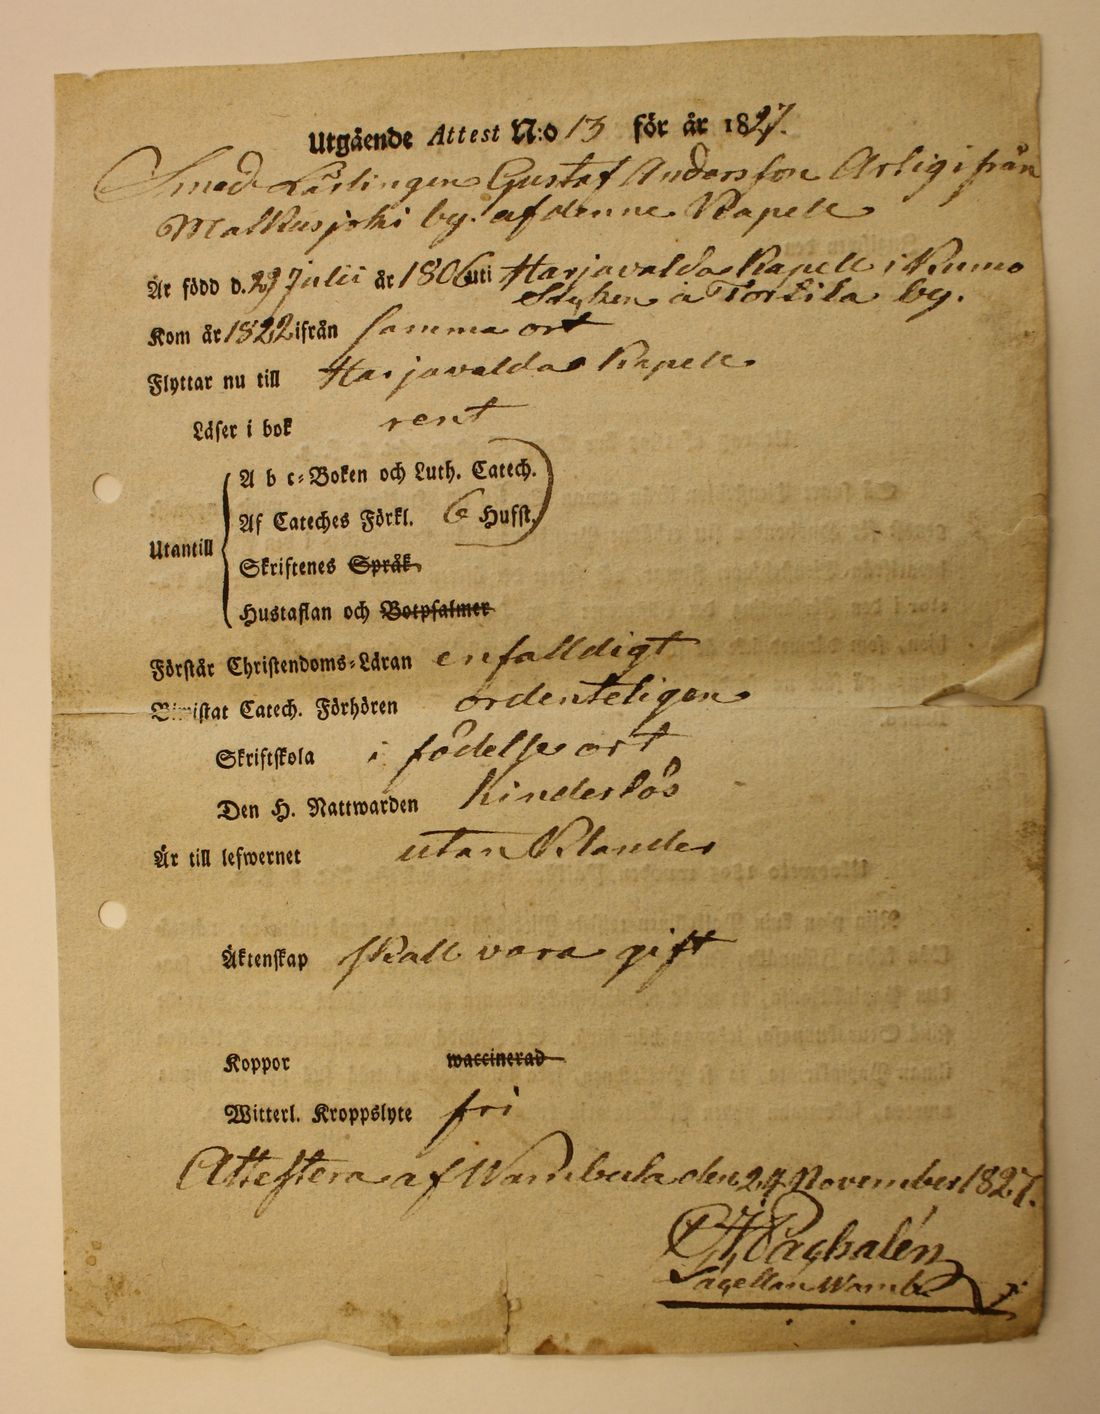 Utgående Attest N:o 13 för år 1827.
Smed Lärlingen Gustaf Andersson Arlig ifrån
Matkusjoki by. af denne Kapell
Är född d. 29 Julii år 1806 uti Harjavalda Kapell i Kumo
Socken å Torttila by.
Kom år 1822 ifrån samma ort
Flyttar nu till Harjavalda Kapell
Läser i bok rent
Utantill
A b c-Boken och Luth. Catech.
Af Cateches Förkl. 6 Hufst.
Skriftenes Språk
Hustaflan och Botpsalmer
Förstår Christendoms-Läran enfalldigt
Biwistat Catech. Förhören ordenteligen
Skriftskola i födelse ort
Den H. Nattwarden hinderlös
Är till lefwernet utan Klander
Äktenskap skall vara gift
Koppor waccinerad
Witterl. Kroppslyte fri
Attestera af Wambula den 24 November 1827.